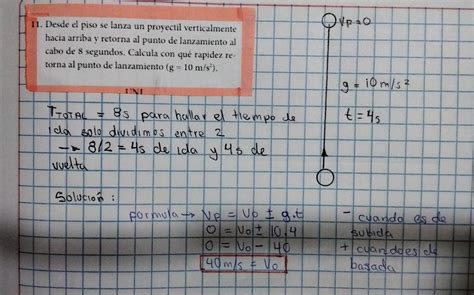 11. Desde el piso se lanza un proyectil verticalmente
hacia arriba y retorna al punto de lanzamiento al
cabo de 8 segundos. Calcula con qué rapidez re-
torna al punto de lanzamiento (g = 10 m/s²).
UNI
Vp = 0
g = 10 m/s²
t = 4s
TTOTAL = 8s para hallar el tiempo de
ida solo dividimos entre 2
→ 8/2 = 4s de ida y 4s de
vuelta
Solución:
formula → Vp = Vo ± g.t
0 = Vo ± 10.4
0 = Vo - 40
40m/s = Vo
- cuando es de
subida
+ cuando es de
basada